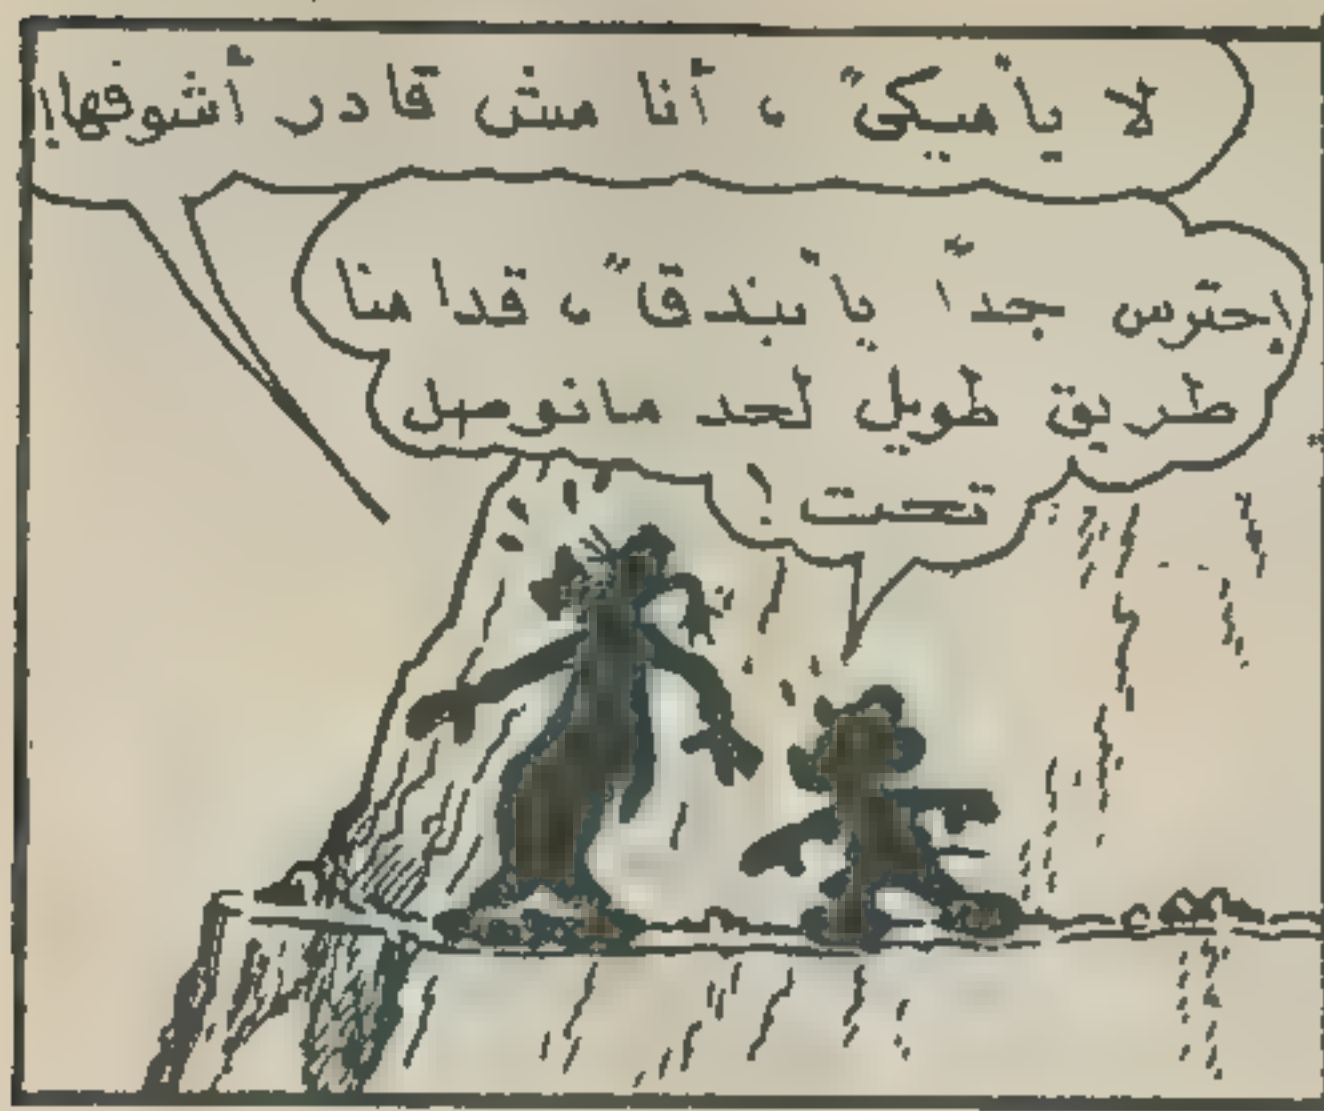 لا يا "ميكى" ، أنا مش قادر أشوفها!
إحترس جداً يا "بندق" ، قدامنا
طريق طويل لحد مانوصل
تحت !